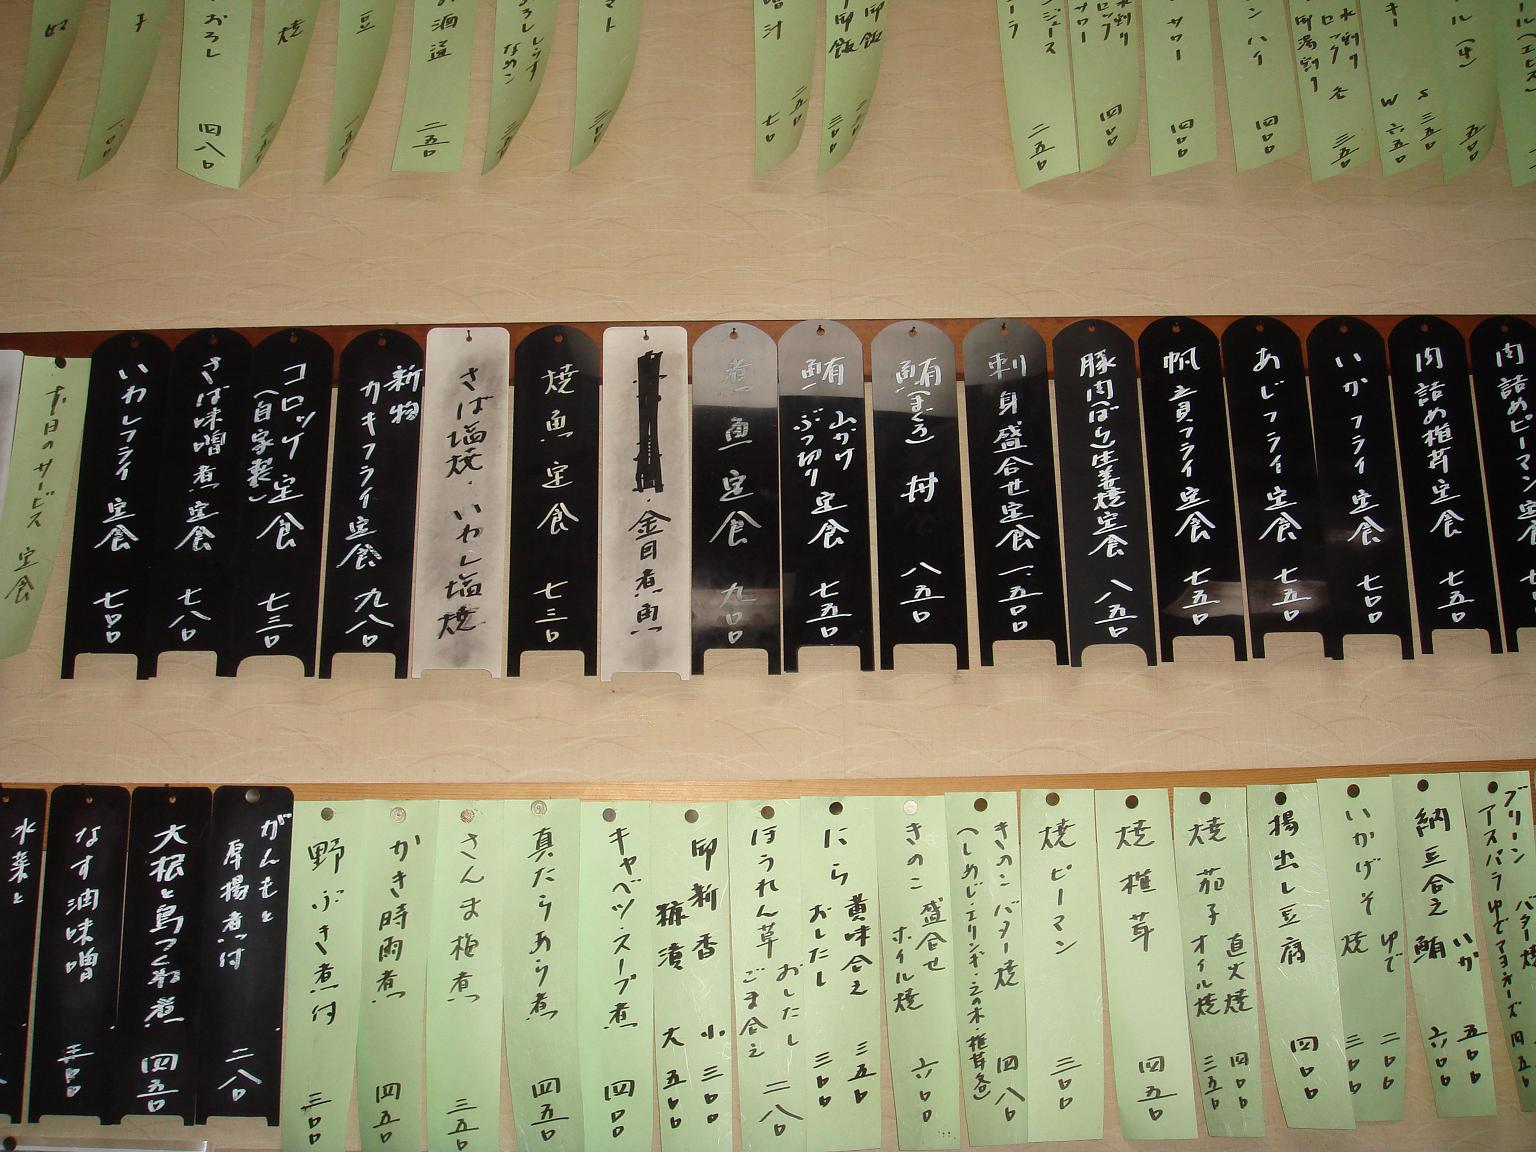 おろし 四八〇
焼
豆
酒盗 二五〇
なめこ
マト
二五〇
四〇〇
サワー 四〇〇
ンハイ 四〇〇
水割り
ロック
W 六五〇
S 三五〇
五〇〇
肉詰めピーマン定
肉詰め椎茸定食 七五〇
いかフライ定食 七〇〇
あじフライ定食 七五〇
帆立貝フライ定食 七五〇
豚肉(ばら)生姜焼定食 八五〇
刺身盛合せ定食 一、五〇〇
鮪(まぐろ)丼 八五〇
鮪 山かけ
ぶつ切り 定食 七五〇
煮魚定食 九〇〇
・金目煮魚
焼魚定食 七三〇
さば塩焼・いわし塩焼
新物
カキフライ定食 九八〇
コロッケ定食
(自家製) 七三〇
さば味噌煮定食 七八〇
いわしフライ定食 七〇〇
本日のサービス定食
グリーン
アスパラ バター焼
ゆでマヨネーズ
納豆合え いか 五〇〇
鮪 六〇〇
いかげそ ゆで 二〇〇
焼 三〇〇
揚出し豆腐 四〇〇
焼茄子 直火焼 四〇〇
オイル焼 三五〇
焼椎茸 四五〇
焼ピーマン 三〇〇
きのこバター焼 四八〇
(しめじ・エリンギ・えの木・椎茸各)
きのこ盛合せ
ホイル焼 六〇〇
にら 黄味合え 三五〇
おしたし 三〇〇
ほうれん草 おしたし
ごま合え 二八〇
御新香 小 三〇〇
糠漬 大 五〇〇
キャベツ・スープ煮 四〇〇
真たらあら煮 四五〇
さんま梅煮 三五〇
かき時雨煮 四五〇
野ぶき煮付 三〇〇
がんもと
厚揚煮付 二八〇
大根と鳥つくね煮 四五〇
なす油味噌 三〇〇
水菜と